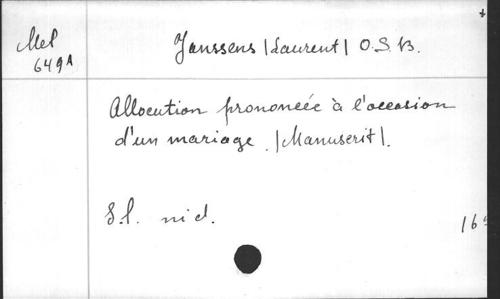 Mel
649A
Janssens |Laurent| O.S.B.
Allocution prononcée à l'occasion
d'un mariage. |Manuscrit|.
S.l. ni d.
16°